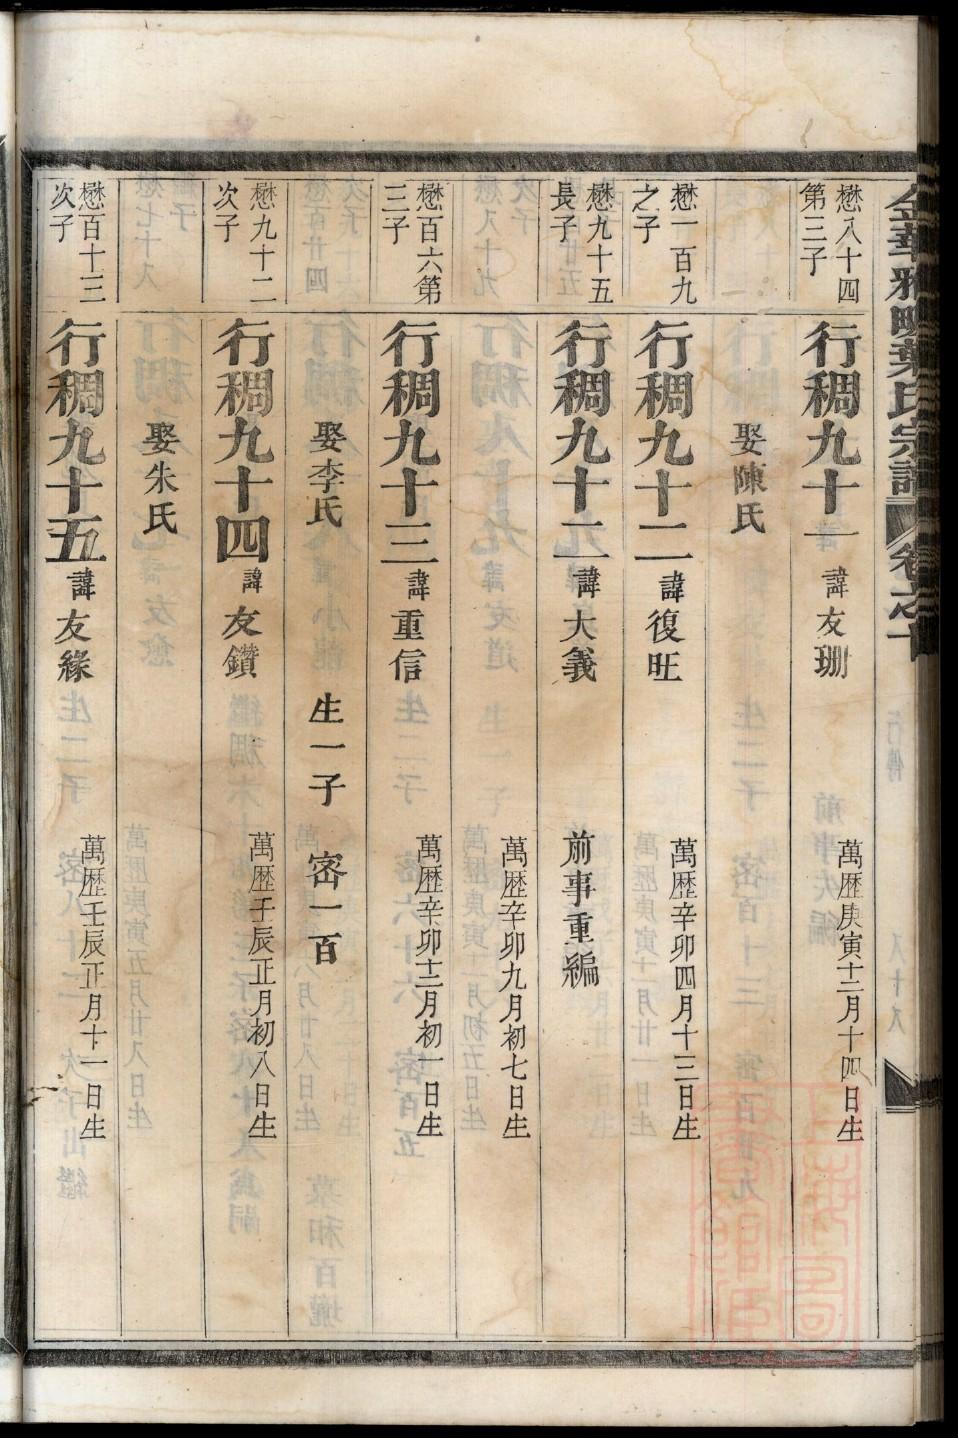 懋八十四
第三子
行稠九十一 諱友珊 萬歷庚寅十二月十四日生
娶陳氏
懋一百九
之子
行稠九十二 諱復旺 萬歷辛卯四月十三日生
懋九十五
長子
行稠九十二 諱大義 前事重編
萬歷辛卯九月初七日生
懋百六第
三子
行稠九十三 諱重信 萬歷辛卯十二月初一日生
娶李氏 生一子 密一百
懋九十二
次子
行稠九十四 諱友鑽 萬歷壬辰正月初八日生
娶朱氏
懋百十三
次子
行稠九十五 諱友緣 萬歷壬辰正月十一日生